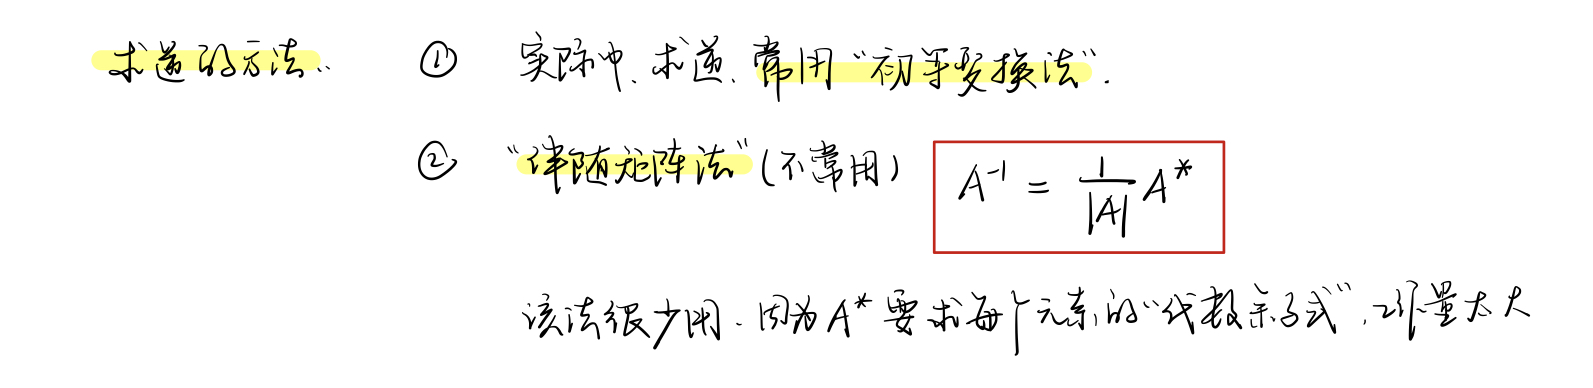 求逆的方法.. ① 实际中、求逆、常用“初等变换法”.
② “伴随矩阵法”(不常用) A⁻¹ = 1/|A| A*
该法很少用、因为A*要求每个元素的“代数余子式”，工作量太大